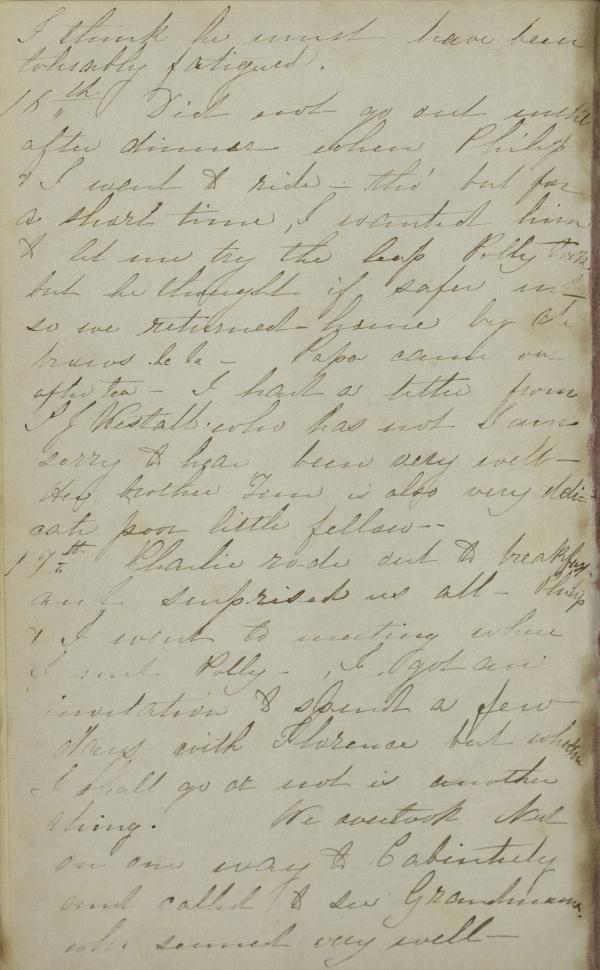 I think he must have been
tolerably fatigued.
16th Did not go out until
after dinner when Philip
& I went to ride - tho' but for
a short time, I wanted him
to let me try the leap Polly
but he thought it safer not
so we returned home by
Papa came out
after tea - I had a letter from
Westall who has not I am
sorry to hear been very well -
Her brother Tom is also very deli=
cate poor little fellow --
17th Charlie rode out to breakfast
and surprised us all - Philip
& I went to meeting when
I met Polly - I got an
invitation to spend a few
days with Florence but whether
I shall go or not is another
thing. We overtook Nat
on our way to Cabinteely
and called to see Grandmama.
who seemed very well -